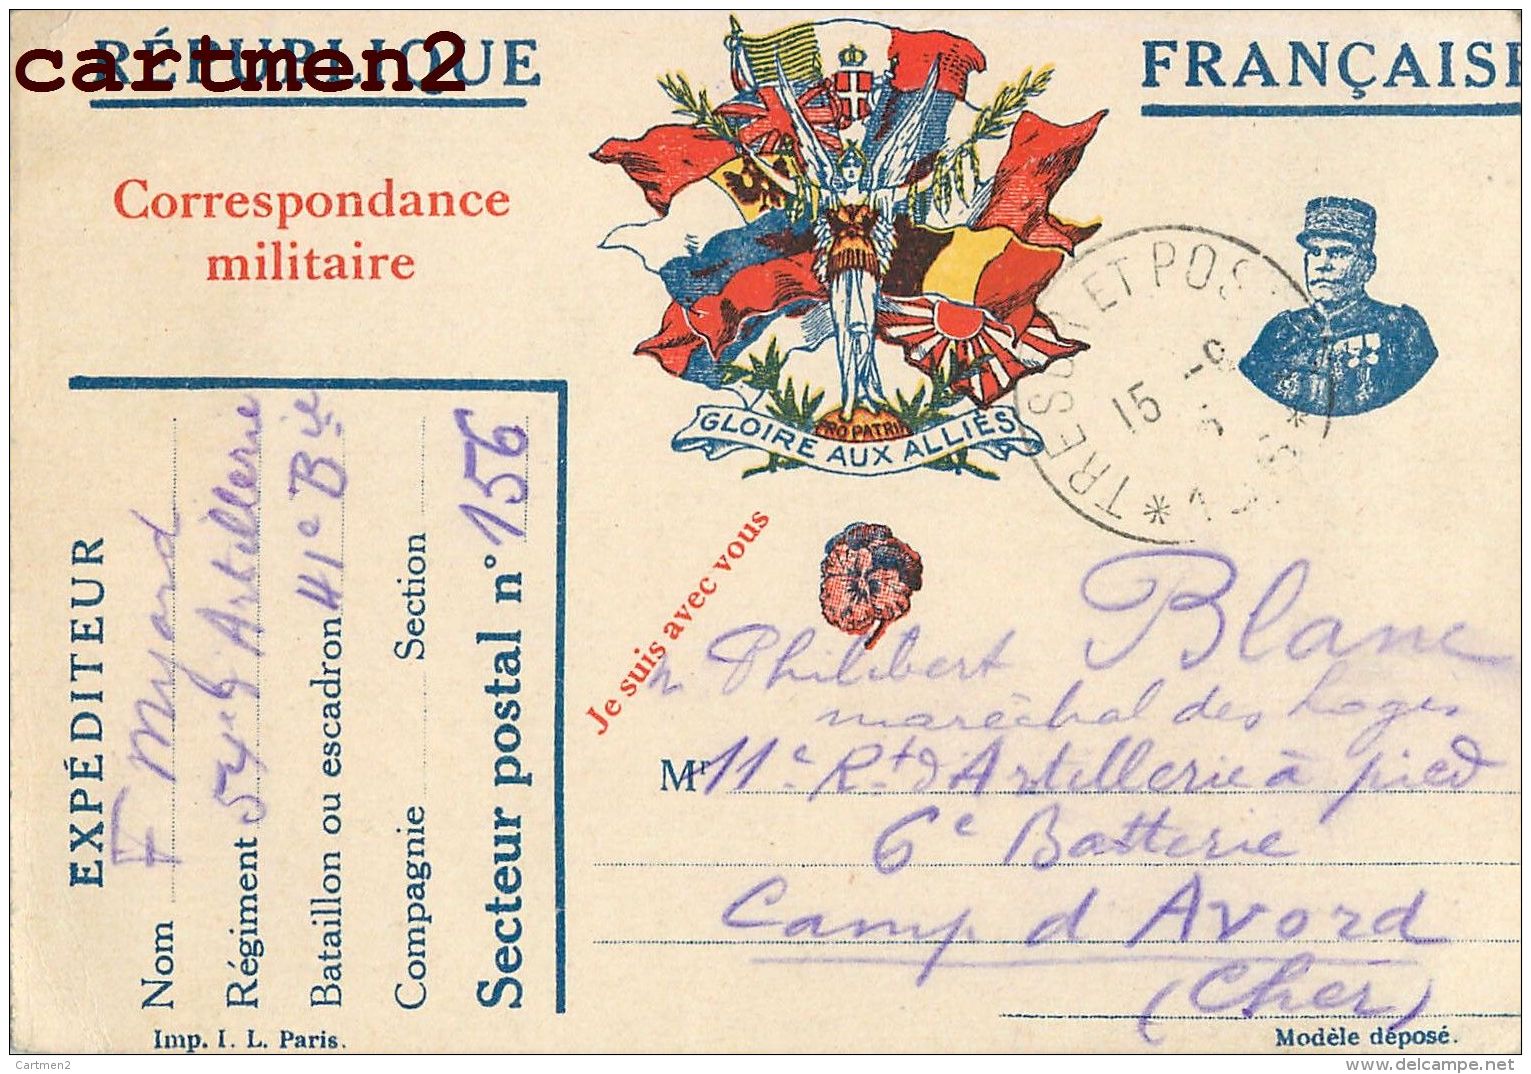 cartmen2
RÉPUBLIQUE FRANÇAISE
Correspondance
militaire
GLOIRE AUX ALLIÉS
PRO PATRIA
TRESOR ET POSTES
15 -9
Je suis avec vous
EXPÉDITEUR
Nom F Myard
Régiment Artillerie
Bataillon ou escadron 41e Bie
Compagnie Section
Secteur postal n° 156
Blanc
Philibert
maréchal des Logis
Mr 11e Rt d'Artillerie à pied
6e Batterie
Camp d'Avord
(Cher)
Imp. I. L. Paris.
Modèle déposé.
Cartmen2
delcampe.net